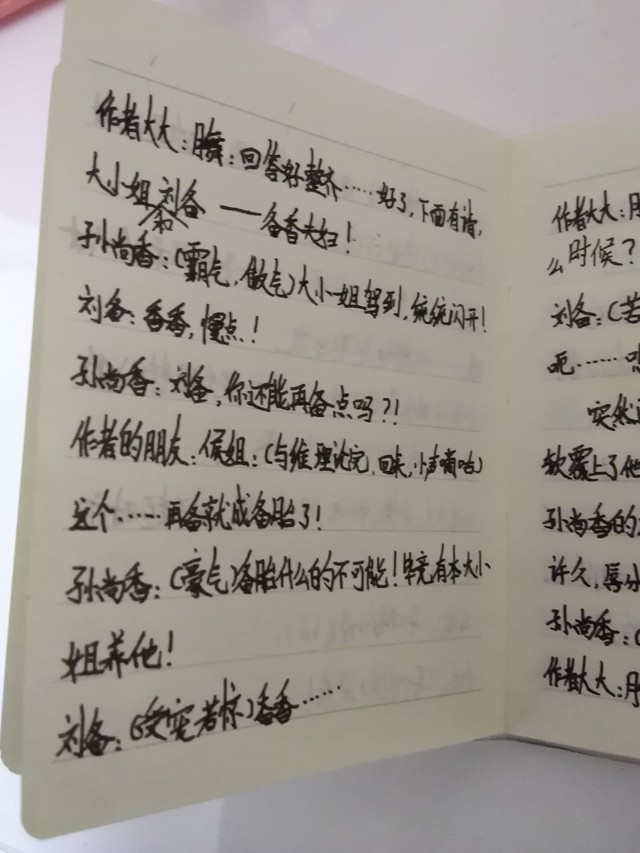 作者大大：月舞：回答好整齐……好了，下面有请，
大小姐和刘备——备香夫妇！
孙尚香：（霸气，傲气）大小姐驾到，统统闪开！
刘备：香香，慢点！
孙尚香：刘备，你还能再备点吗？！
作者的朋友：侯姐：（与维理论完，回来，小声嘀咕）
这个……再备就成备胎了！
孙尚香：（豪气）备胎什么的不可能！毕竟有本大小
姐养他！
刘备：（受宠若惊）香香……
作者大大：月
么时候？
刘备：（苦
吧……
突然
软露上了他
孙尚香的
许久，
孙尚香：（
作者大大：月